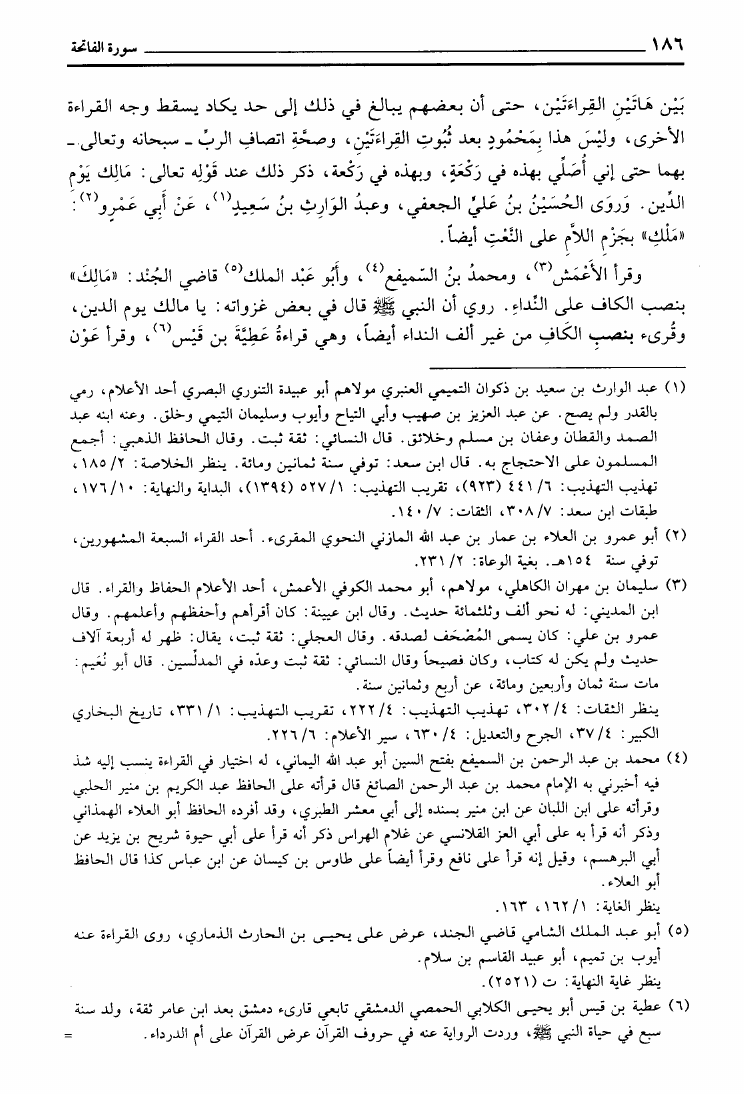 ١٨٦ سورة الفاتحة
بَيْن هَاتَيْنِ القِراءَتَيْن، حتى أن بعضهم يبالغ في ذلك إلى حد يكاد يسقط وجه القراءة
الأخرى، وليْسَ هذا بِمَحْمُودٍ بعد ثُبُوتِ القِراءَتَيْنِ، وصحَّةِ اتصافِ الربِّ ـ سبحانه وتعالى ـ
بهما حتى إني أُصَلِّي بهذه في رَكْعَةٍ، وبهذه في رَكْعة، ذكر ذلك عند قَوْلِه تعالى: مَالِك يَوْمِ
الدِّين. وَرَوَى الحُسَيْنُ بنُ عَليٍّ الجعفي، وعبدُ الوَارِثِ بنُ سَعِيدٍ(١)، عَنْ أَبِي عَمْرٍو(٢):
«مَلْكِ» بجَزْمِ اللاَّمِ على النَّعْتِ أيضاً.
وقرأ الأَعْمَش(٣)، ومحمدُ بنُ السّميفع(٤)، وأَبُو عَبْد الملك(٥) قاضي الجُنْد: «مَالِكَ»
بنصب الكاف على النِّداءِ. روي أن النبي ﷺ قال في بعض غزواته: يا مالك يوم الدين،
وقُرِىء بنصبِ الكَافِ من غير ألف النداء أيضاً، وهي قراءةُ عَطِيَّةَ بن قَيْس(٦)، وقرأ عَوْن
(١) عبد الوارث بن سعيد بن ذكوان التميمي العنبري مولاهم أبو عبيدة التنوري البصري أحد الأعلام، رمي
بالقدر ولم يصح. عن عبد العزيز بن صهيب وأبي التياح وأيوب وسليمان التيمي وخلق. وعنه ابنه عبد
الصمد والقطان وعفان بن مسلم وخلائق. قال النسائي: ثقة ثبت. وقال الحافظ الذهبي: أجمع
المسلمون على الاحتجاج به. قال ابن سعد: توفي سنة ثمانين ومائة. ينظر الخلاصة: ٢/ ١٨٥،
تهذيب التهذيب: ٦/ ٤٤١ (٩٢٣)، تقريب التهذيب: ١/ ٥٢٧ (١٣٩٤)، البداية والنهاية: ١٠/ ١٧٦،
طبقات ابن سعد: ٧/ ٣٠٨، الثقات: ٧/ ١٤٠.
(٢) أبو عمرو بن العلاء بن عمار بن عبد الله المازني النحوي المقرىء. أحد القراء السبعة المشهورين،
توفي سنة ١٥٤هـ. بغية الوعاة: ٢/ ٢٣١.
(٣) سليمان بن مهران الكاهلي، مولاهم، أبو محمد الكوفي الأعمش، أحد الأعلام الحفاظ والقراء. قال
ابن المديني: له نحو ألف وثلثمائة حديث. وقال ابن عيينة: كان أقرأهم وأحفظهم وأعلمهم. وقال
عمرو بن علي: كان يسمى المُصْحَف لصدقه. وقال العجلي: ثقة ثبت، يقال: ظهر له أربعة آلاف
حديث ولم يكن له كتاب، وكان فصيحاً وقال النسائي: ثقة ثبت وعدّه في المدلّسين. قال أبو نُعَيم:
مات سنة ثمان وأربعين ومائة، عن أربع وثمانين سنة.
ينظر الثقات: ٤/ ٣٠٢، تهذيب التهذيب: ٤/ ٢٢٢، تقريب التهذيب: ١/ ٣٣١، تاريخ البخاري
الكبير: ٤/ ٣٧، الجرح والتعديل: ٤/ ٦٣٠، سير الأعلام: ٦/ ٢٢٦.
(٤) محمد بن عبد الرحمن بن السميفع بفتح السين أبو عبد الله اليماني، له اختيار في القراءة ينسب إليه شذ
فيه أخبرني به الإمام محمد بن عبد الرحمن الصائغ قال قرأته على الحافظ عبد الكريم بن منير الحلبي
وقرأته على ابن اللبان عن ابن منير بسنده إلى أبي معشر الطبري، وقد أفرده الحافظ أبو العلاء الهمذاني
وذكر أنه قرأ به على أبي العز القلانسي عن غلام الهراس ذكر أنه قرأ على أبي حيوة شريح بن يزيد عن
أبي البرهسم، وقيل إنه قرأ على نافع وقرأ أيضاً على طاوس بن كيسان عن ابن عباس كذا قال الحافظ
أبو العلاء.
ينظر الغاية: ١/ ١٦٢، ١٦٣.
(٥) أبو عبد الملك الشامي قاضي الجند، عرض على يحيى بن الحارث الذماري، روى القراءة عنه
أيوب بن تميم، أبو عبيد القاسم بن سلام.
ينظر غاية النهاية: ت (٢٥٢١).
(٦) عطية بن قيس أبو يحيى الكلابي الحمصي الدمشقي تابعي قارىء دمشق بعد ابن عامر ثقة، ولد سنة
سبع في حياة النبي ﷺ، وردت الرواية عنه في حروف القرآن عرض القرآن على أم الدرداء. =